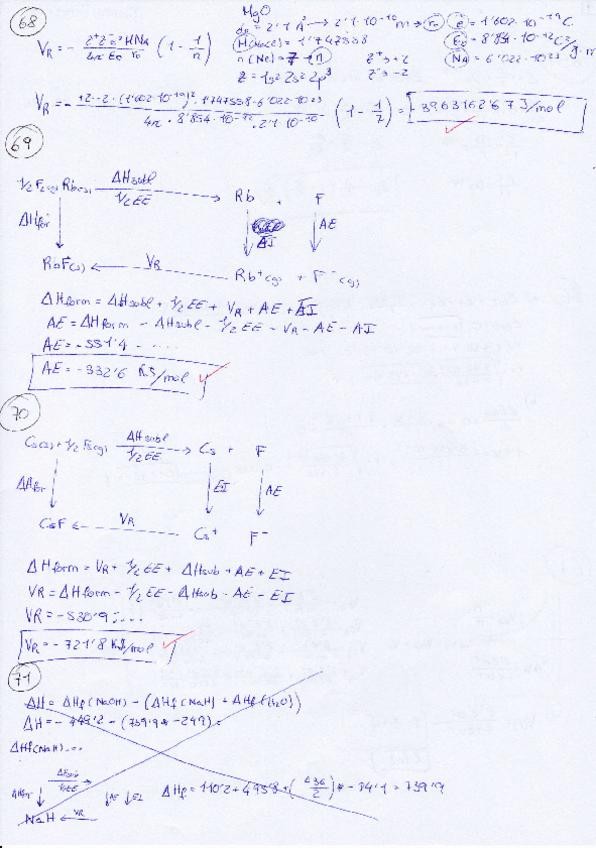 68
MgO
d₀ = 2'1 Å → 2'1·10⁻¹⁰ m → r₀ e = 1'602·10⁻¹⁹ C.
V_R = - z⁺z⁻e²HNA / 4π E₀ r₀ (1 - 1/n)
H(NaCl) = 1'747558 E₀ = 8'854·10⁻¹² C²/J·m
n(Ne) = 7 → n z⁺ = +2 NA = 6'022·10²³
z⁻ = -2
V_R = - +2·-2·(1'602·10⁻¹⁹)²·1'747558·6'022·10²³ / 4π·8'854·10⁻¹²·2'1·10⁻¹⁰ (1 - 1/7) = -3963162'67 J/mol
69
1/2 F₂(g) Rb(s) ΔHsubl → Rb + F
1/2 EE
ΔHfor AI AE
RbF(s) ← VR Rb⁺(g) + F⁻(g)
ΔHform = ΔHsubl + 1/2 EE + VR + AE + AI
AE = ΔHform - ΔHsubl - 1/2 EE - VR - AE - AI
AE = -551'4 - .....
AE = -332'6 KJ/mol
70
Cs(s) + 1/2 F₂(g) ΔHsubl → Cs + F
1/2 EE
ΔHfor EI AE
CsF ← VR Cs⁺ F⁻
ΔHform = VR + 1/2 EE + ΔHsub + AE + EI
VR = ΔHform - 1/2 EE - ΔHsub - AE - EI
VR = -530'9 ....
VR = -721'8 KJ/mol
71
ΔH = ΔHf(NaOH) - (ΔHf(NaH) + ΔHf(H₂O))
ΔHf(NaH)...
1/2 EE
ΔHfor AE EI
NaH ← VR
ΔHf = 110'2 + 495'8 + (436/2) + -74'1 = 739'9